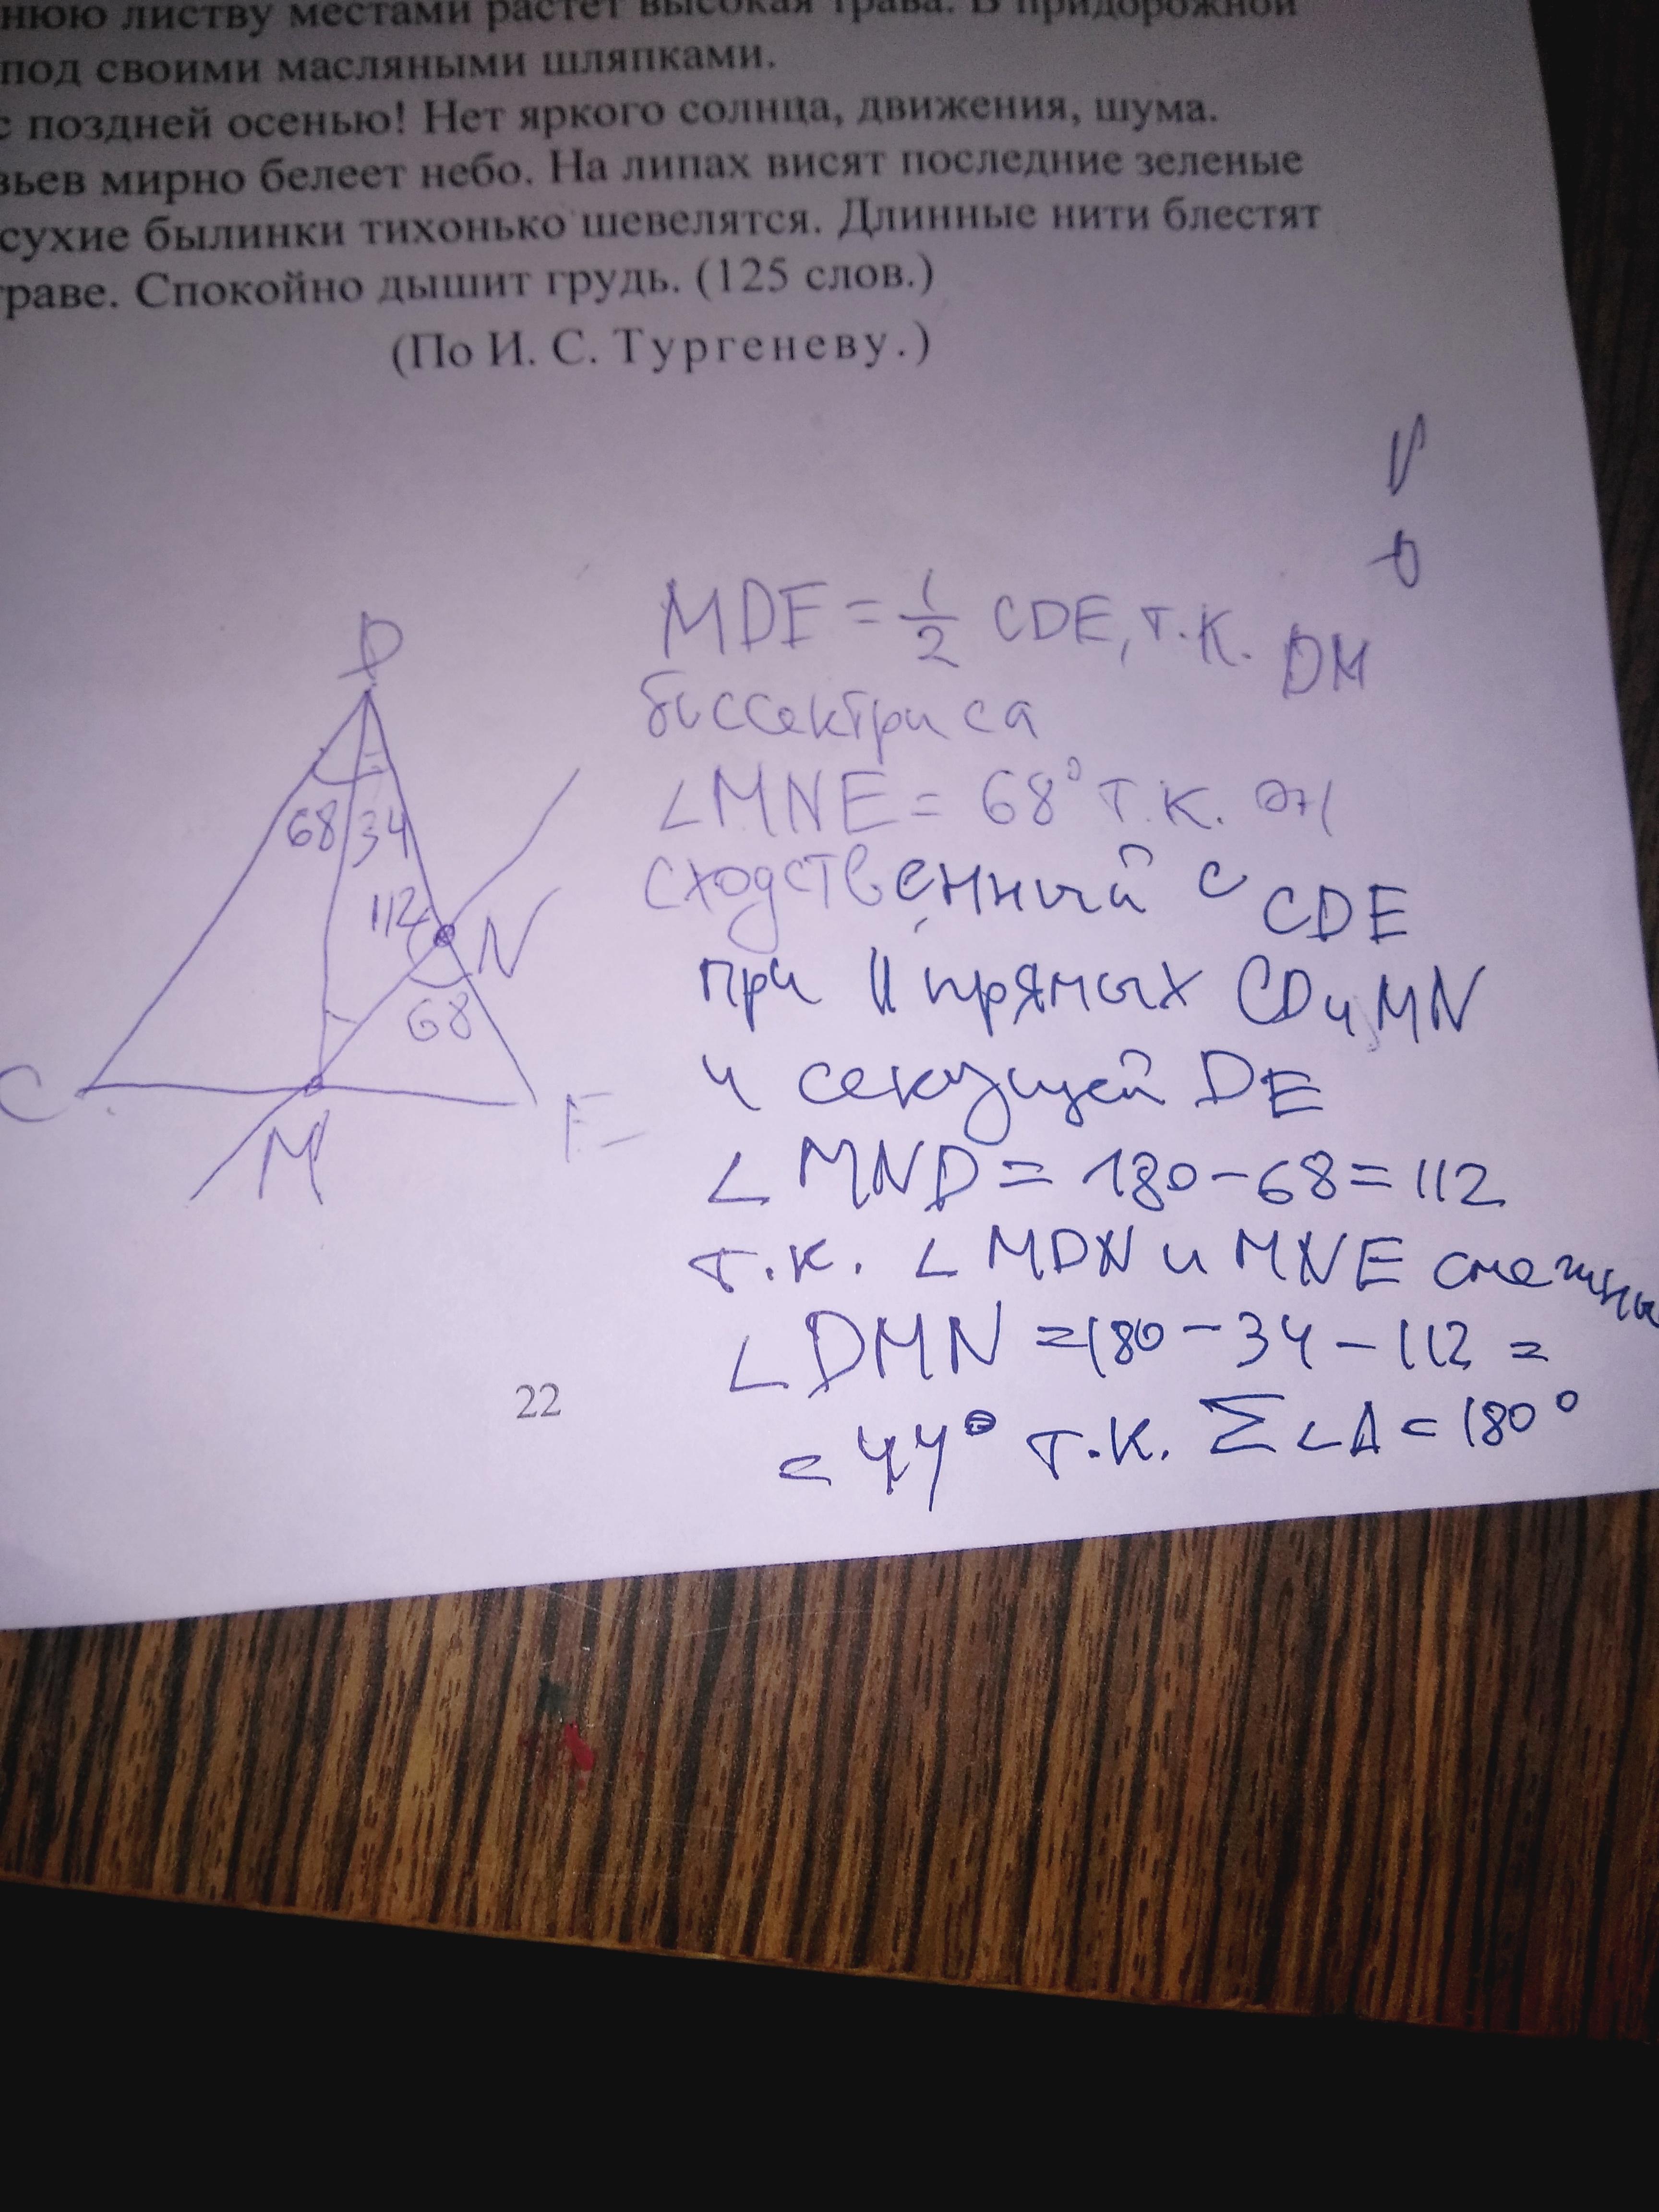 нюю листву местами растет высокая трава. В придорожной
под своими масляными шляпками.
с поздней осенью! Нет яркого солнца, движения, шума.
вьев мирно белеет небо. На липах висят последние зеленые
сухие былинки тихонько шевелятся. Длинные нити блестят
траве. Спокойно дышит грудь. (125 слов.)
(По И. С. Тургеневу.)
MDE = 1/2 CDE, т.к. DM
биссектриса
∠MNE = 68° т.к. он
сходственный с CDE
при || прямых CD и MN
и секущей DE
∠MND = 180-68=112
т.к. ∠MDN и MNE смежны
∠DMN =180-34-112=
=44° т.к. Σ∠Δ=180°
D
68 34
112
N
68
C
M
E
22